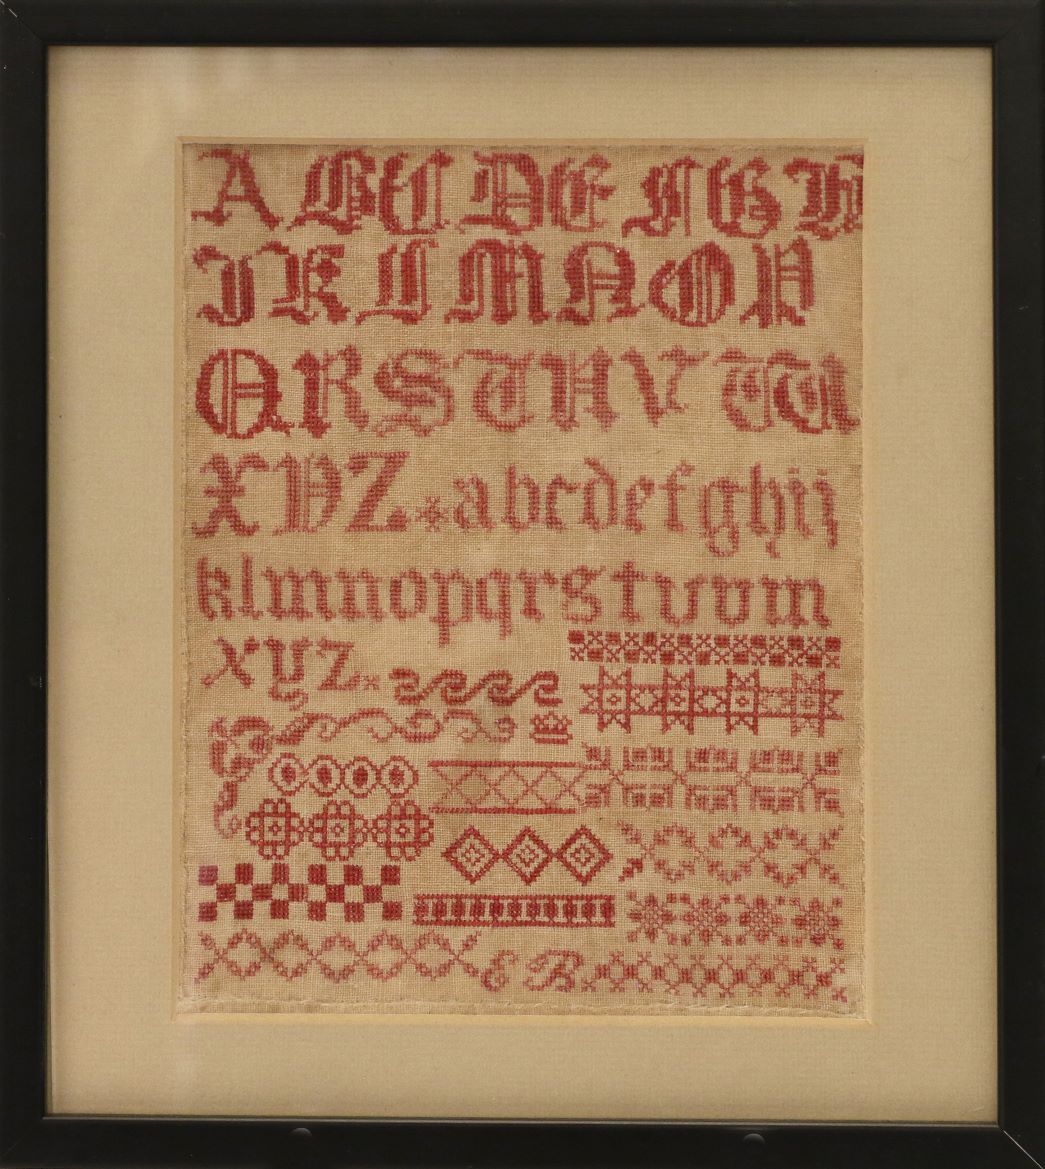 A B C D E F G H
I K L M N O P
Q R S T U V W
X Y Z a b c d e f g h i j
k l m n o p q r s t u v w
x y z
E B